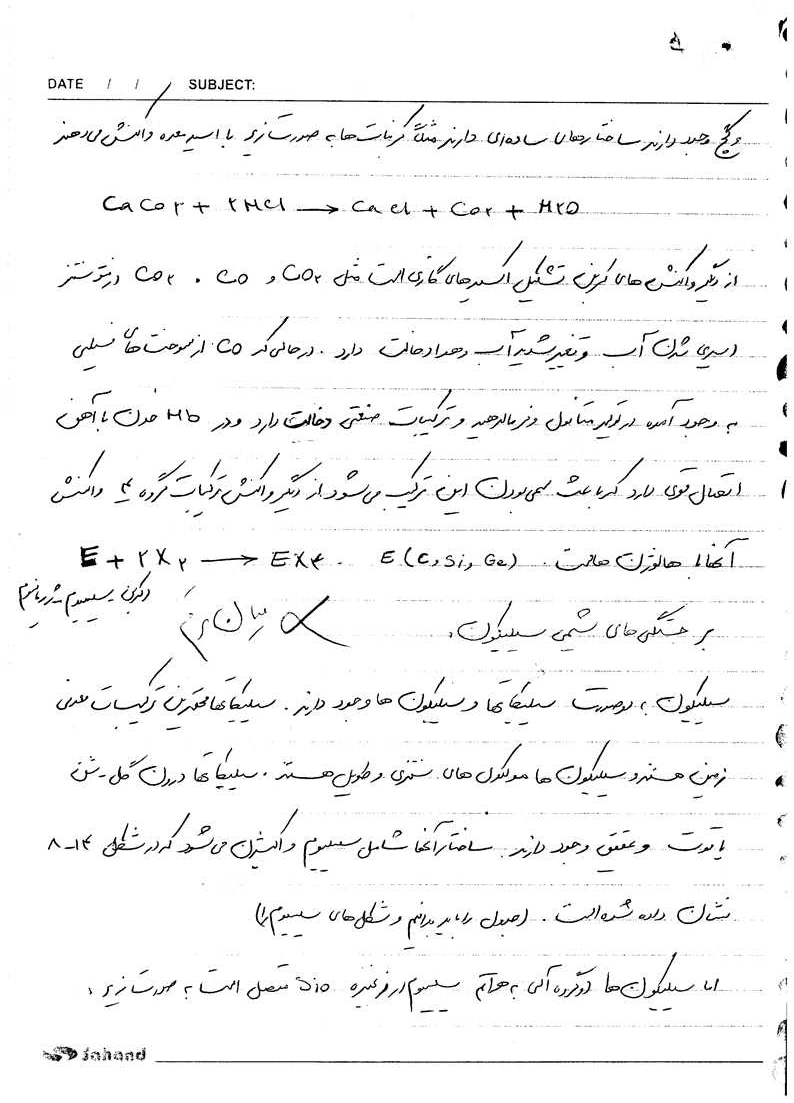 DATE / / SUBJECT:
و گچ وجود دارند ساختارهای ساده‌ای دارند مثلاً کربنات‌ها به صورت زیر با اسید معده واکنش می‌دهند
CaCo۳ + ۲HCl → CaCl + Co۲ + H۲O
از دیگر واکنش های کربن تشکیل اکسیدهای گازی است مثل CO۲ و CO . CO۲ در فتوسنتز
اسیدی شدن آب و تغییر شدید آب وهوا دخالت دارد . در حالی که CO از سوخت های فسیلی
به وجود آمده در تولید متانول و فرمالدهید و ترکیبات صنعتی دخالت دارد و در Hb خون با آهن
اتصال قوی دارد که باعث سمی بودن این ترکیب می‌شود از دیگر واکنش ترکیبات گروه ۴ واکنش
آنها با هالوژن هاست . E (C, Si, Ge) E + ۲X۲ → EX۴
بر جستگی های شیمی سیلیکون .
سیلیکون به دو صورت سیلیکاتها و سیلیکون ها وجود دارند . سیلیکاتها مهمترین ترکیبات معدنی
زمین هستند و سیلیکون ها مولکول های سنتزی و طویل هستند . سیلیکاتها در رون گل - شن
یاقوت و عقیق وجود دارند . ساختار آنها شامل سیلسیوم و اکسیژن می‌شود که در شکل ۱۴-۸
نشان داده شده است . (جدول را باید بدانیم و شکل های سیلسیوم را)
اما سیلیکون ها دو گروه آلی به هر اتم سیلسیوم در زنجیره Sio متصل است به صورت زیر .
Sahand